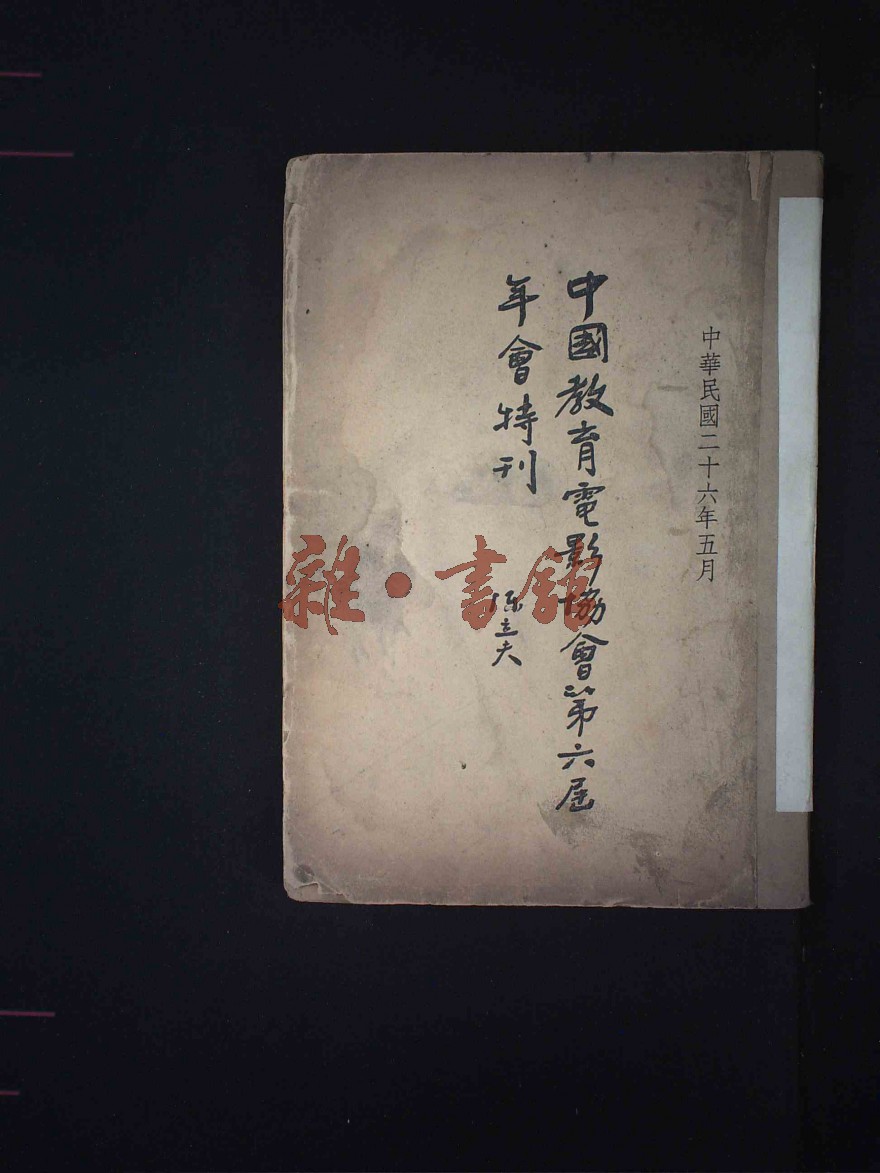 中華民國二十六年五月
中國教育電影協會第六屆
年會特刊
陳立夫
雜·書館